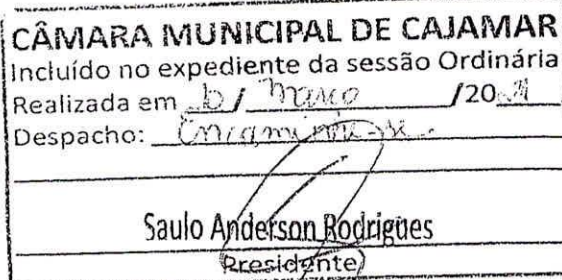 CÂMARA MUNICIPAL DE CAJAMAR
Incluído no expediente da sessão Ordinária
Realizada em / Março /20
Despacho: Encaminha-se.
Saulo Anderson Rodrigues
(Presidente)